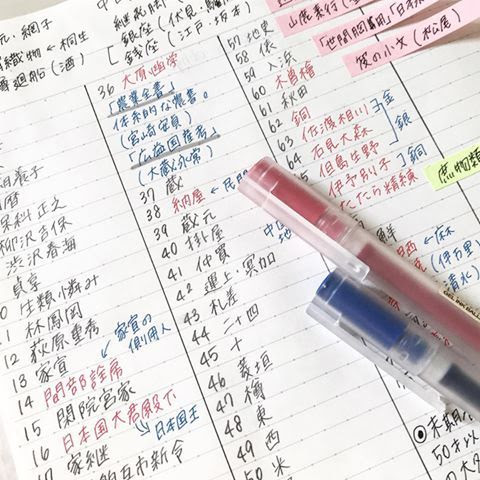 元、網子
織物 ← 桐生
廻船(酒)
銀座(伏見
銭座(江戸・坂本
養子
保科正之
柳沢吉保
渋沢春海
貞享
10 生類憐み
11 林鳳岡
12 荻原重秀
13 家宣
家宣の側用人
14 間部詮房
15 閑院宮家
16 日本国大君殿下
日本国王
17 家継
互市新令
36 大原幽学
「農業全書」
体系的な農書。
(宮崎安貞)
「広益国産考」
(大蔵永常)
37 蔵
38 納屋 ← 民間
39 蔵元
40 掛屋
41 仲買
42 運上・冥加
43 札差
44 二十四
45 十
46 菱垣
47 樽
48 東
49 西
50 米
57 地史
58 俵
59 入浜
60 木曽檜
61 秋田
62 銅
63 佐渡相川
金
64 石見大森
銀
65 但島生野
伊予別子
銅
たたら精練
鮮
← 麻
(伊万里)
清水)
山鹿素行
「世間胸算用」「日本
笈の小文(松尾)
50才以